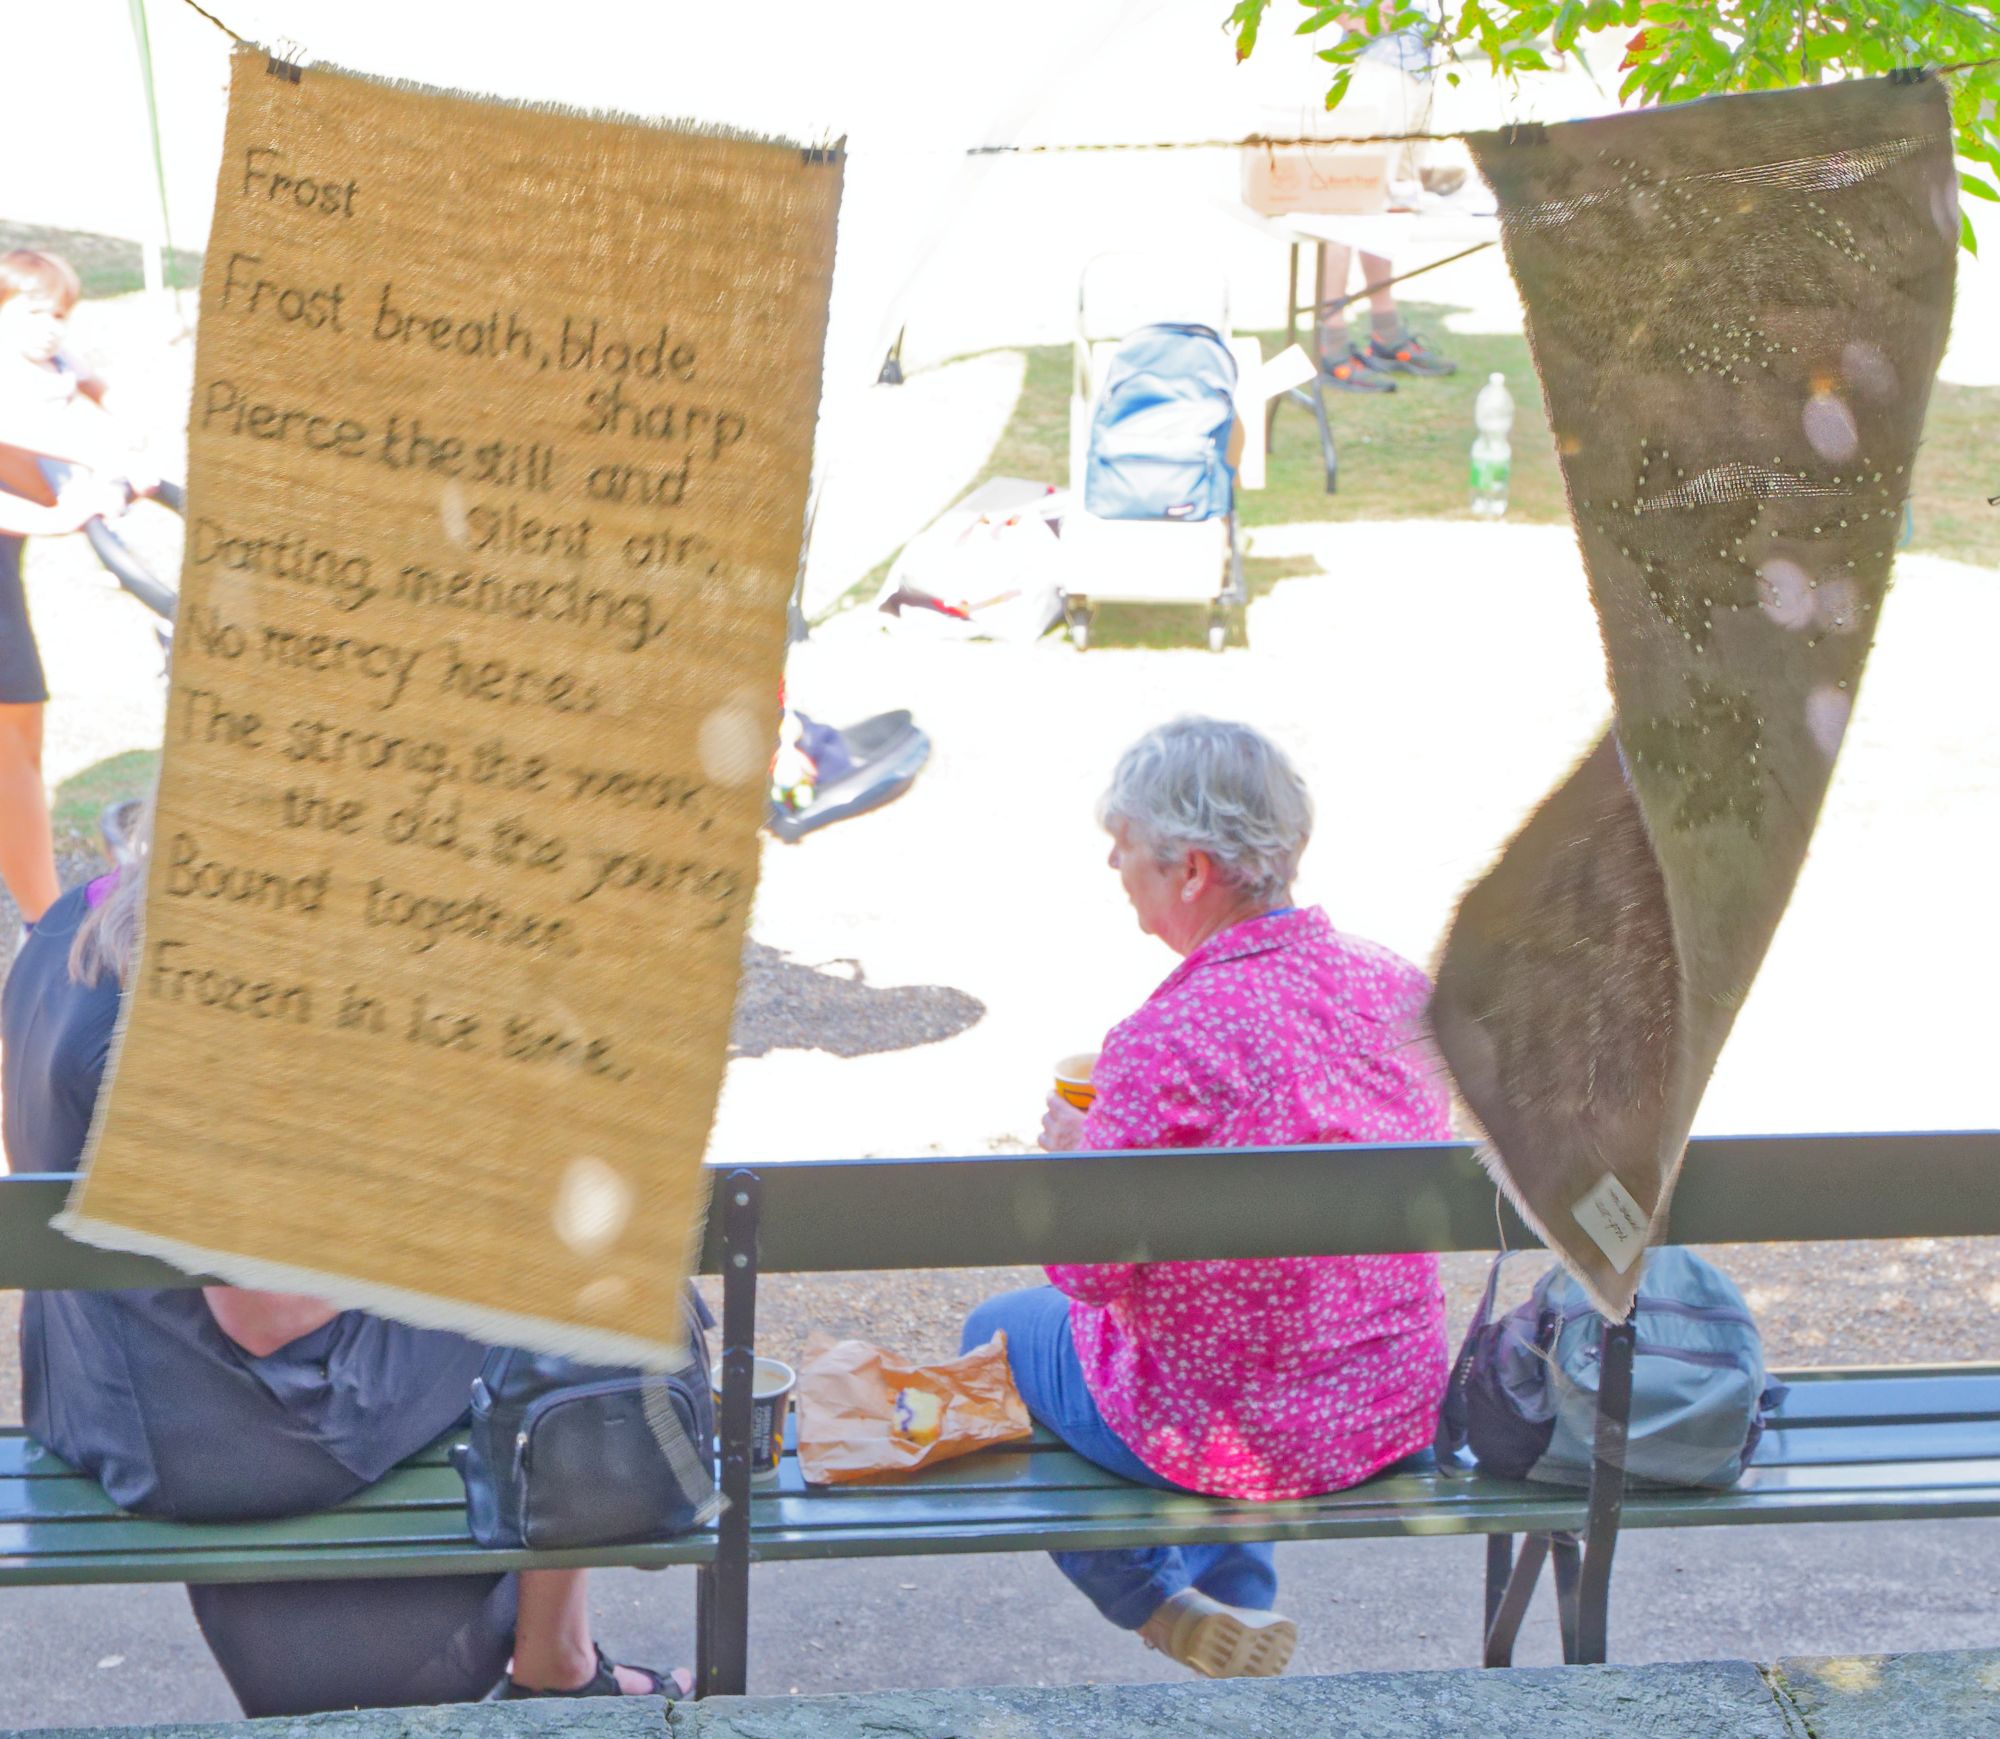 Frost
Frost breath, blade
sharp
Pierce the still and
silent air,
Darting, menacing,
No mercy here.
The strong, the weak,
the old, the young
Bound together,
Frozen in ice time.